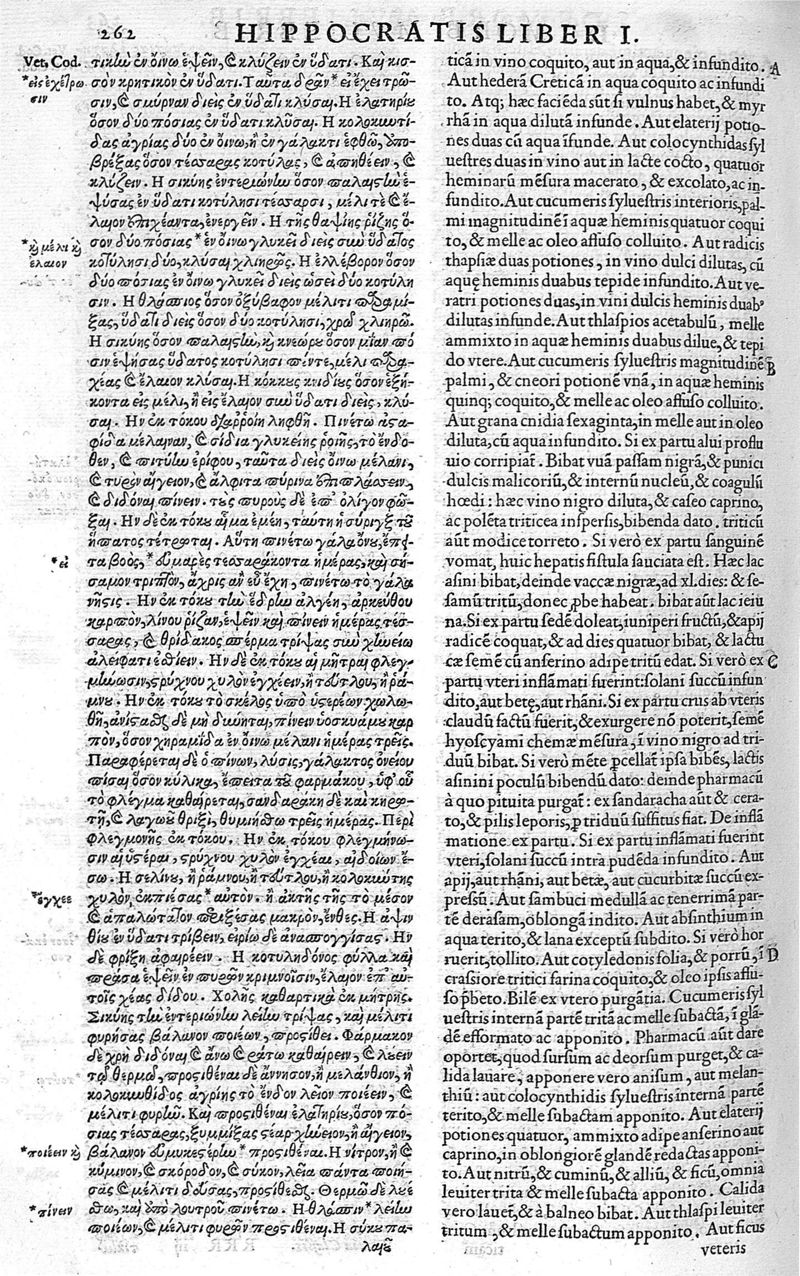 262 HIPPOCRATIS LIBER I.
Vet. Cod.
*εἰς ἐχέτρω
σιν
*κ̀ μέλι κ̀
ἔλαιον
*εἰ
*ἔγχεε
*ποιέειν κ̀
*πίνειν
τικῶ ἐν οἴνω ἑψεῖν, & κλύζειν ἐν ὕδατι. Καὶ κισ-
σὸν κρητικὸν ἐν ὕδατι. Ταῦτα δρᾶν* εἰ ἔχει τρῶ-
σιν, & σμύρναν διεὶς ἐν ὕδατι κλύσαι. Η ἐλατηρίου
ὅσον δύο πόσιας ἐν ὕδατι κλῦσαι. Η κολοκωτί-
δας ἀγρίας δύο ἐν οἴνω, ἢ ἐν γάλακτι ἑφθῶ, ὑπο-
βρέξας ὅσον τέσσαρας κοτύλας, & ἀπηθέειν, &
κλύζειν. Η σικύης ἐντεριώνην ὅσον παλαιστὴν ἑ-
ψήσας ἐν ὕδατι κοτύλησι τέσσαρσι, μέλι τὲ & ἔ-
λαιον ἐπιχέαντα, ἐνεργεῖν. Η τῆς θαψίης ῥίζης ὅ-
σον δύο πόσιας *ἐν οἴνω γλυκεῖ διεὶς σὺν ὕδατος
κοτύλησι δύο, κλύσαι χλιηρῶς. Η ἐλλέβορον ὅσον
δύο πόσιας ἐν οἴνω γλυκεῖ διεὶς ὡσεὶ δύο κοτύλη
σιν. Η θλάσπιος ὅσον ὀξύβαφον μέλιτι προσμί-
ξας, ὕδατι διεὶς ὅσον δύο κοτύλησι, χρῶ χλιηρῶ.
Η σικύης ὅσον παλαιστὴν, κ̀ κνεώρου ὅσον μίαν πό
σιν ἑψήσας ὕδατος κοτύλησι πέντε, μέλι προσ-
χέας & ἔλαιον κλῦσαι. Η κόκκους κνιδίους ὅσον ἑξή-
κοντα εἰς μέλι, ἢ εἰς ἔλαιον σὺν ὕδατι διεὶς, κλύ-
σαι. Ην ἐκ τόκου διαρροίη ληφθῆ. Πινέτω ἀσα-
φίδα μέλαιναν, & σίδια γλυκείης ῥοιῆς, τὸ ἔνδο-
θεν, & πιτύην ἐρίφου, ταῦτα διεὶς οἴνω μέλανι,
& τυρὸν αἴγειον, & ἄλφιτα πύρινα ἐπιπλάσσειν,
& διδόναι πίνειν. τοὺς πυροὺς δὲ ἐπ' ὀλίγον φῶ-
ξαι. Ην δὲ ἐκ τόκου αἷμα ἐμέῃ, ταύτη ἡ σῦριγξ τοῦ
ἥπατος τέτρωται. Αὕτη πινέτω γάλα ὄνου, ἔπει-
τα βοὸς, *οὐ μαρὲς τεσσαράκοντα ἡμέρας, καὶ σή-
σαμον τριπτὸν, ἄχρις ἂν εὖ ἔχῃ, πινέτω τὸ γάλα
νῆστις. Ην ἐκ τόκου τὴν ἕδρην ἀλγέῃ, ἀρκεύθου
καρπὸν, λίνου ῥίζαν, ἑψεῖν καὶ πίνειν ἡμέρας τέσ-
σαρας, & θρίδακος σπέρμα τρίψας σὺν χηνείω
ἀλείφατι ἐσθίειν. Ην δὲ ἐκ τόκου αἱ μῆτραι φλεγ-
μήνωσιν, στρύχνου χυλὸν ἐγχέειν, ἢ τεύτλου, ἢ ῥά-
μνου. Ην ἐκ τόκου τὸ σκέλος ὑπὸ ὑστερέων χωλω-
θῆ, ἀνίστασθαι δὲ μὴ δύνηται, πίνειν ὑοσκυάμου καρ
πὸν, ὅσον χηραμίδα ἐν οἴνω μέλανι ἡμέρας τρεῖς.
Παραφέρεται δὲ ὁ πίνων, λύσις, γάλακτος ὀνείου
πῖσαι ὅσον κύλικα, ἔπειτα τοῦ φαρμάκου, ὑφ' οὗ
τὸ φλέγμα καθαίρεται, σανδαράκη δὲ καὶ κηρω-
τῆ, & λαγωοῦ θριξὶ, θυμιῆσθω τρεῖς ἡμέρας. Περὶ
φλεγμονῆς ἐκ τόκου. Ην ἐκ τόκου φλεγμήνω-
σιν αἱ ὑστέραι, στρύχνου χυλὸν ἐγχέαι, αἰδοίων ἔ-
σω. Η σελίνου, ἢ ῥάμνου, ἢ τεύτλου, ἢ κολοκώτης
χυλὸν, ἐκπιέσας *αὐτὸν. ἢ ἀκτῆς τῆς τὸ μέσον
& ἁπαλώτατον περιξέσας μακρὸν, ἔνθες. Η ἀψιν
θίου ἐν ὕδατι τρίβειν, εἰρίω δὲ ἀνασπογγίσας. Ην
δὲ φρίξῃ ἀφαιρέειν. Η κοτυληδόνος φύλλα καὶ
πράσα ἑψεῖν ἐν πυρῶν κρίμνοισιν, ἔλαιον ἐπ' αὐ-
τοῖς χέας δίδου. Χολῆς καθαρτικὰ ἐκ μήτρης.
Σικύης τὴν ἐντεριώνην λείην τρίψας, καὶ μέλιτι
φυρήσας βάλανον ποιέων, προστίθει. Φάρμακον
δὲ χρὴ διδόναι & ἄνω & κάτω καθαίρειν, & λούειν
τῶ θερμῶ, προστιθέναι δὲ ἄννησον, ἢ μελάνθιον, ἢ
κολοκωθίδος ἀγρίης τὸ ἔνδον λεῖον ποιέειν, &
μέλιτι φυρῶν. Καὶ προστιθέναι ἐλατηρίου, ὅσον πό-
σιας τέσσαρας, ξυμμίξας στέαρ χήνειον, ἢ αἴγειον,
βάλανον ἐπιμήκεστέρην *προστιθέναι. Η νίτρον, ἢ &
κύμινον, & σκόροδον, & σῦκον, λεῖα πάντα ποιή-
σας & μέλιτι δεύσας, προστίθεσθαι. Θερμῶ δὲ λουέ
σθω, καὶ ἀπὸ λουτροῦ πινέτω. Η θλάσπιν* λείην
ποιέων, & μέλιτι φυρῶν προστιθέναι. Η σύκου πα-
λαιοῦ
ticā in vino coquito, aut in aqua, & infundito. A
Aut hederā Creticā in aqua coquito ac infundi
to. Atq; hæc faciēda sūt si vulnus habet, & myr
rhā in aqua dilutā infunde. Aut elaterij potio-
nes duas cū aqua īfunde. Aut colocynthidas syl
uestres duas in vino aut in lacte cocto, quatuor
heminarū mēsura macerato, & excolato, ac in-
fundito. Aut cucumeris syluestris interioris, pal-
mi magnitudinē ī aquæ heminis quatuor coqui
to, & melle ac oleo affuso colluito. Aut radicis
thapsiæ duas potiones, in vino dulci dilutas, cū
aquę heminis duabus tepide infundito. Aut ve-
ratri potiones duas, in vini dulcis heminis duabꝰ
dilutas infunde. Aut thlaspios acetabulū, melle
ammixto in aquæ heminis duabus dilue, & tepi
do vtere. Aut cucumeris syluestris magnitudinē B
palmi, & cneori potionē vnā, in aquæ heminis
quinq; coquito, & melle ac oleo affuso colluito.
Aut grana cnidia sexaginta, in melle aut in oleo
diluta, cū aqua infundito. Si ex partu alui proflu
uio corripiat̄. Bibat vuā passam nigrā, & punici
dulcis malicoriū, & internū nucleū, & coagulū
hœdi: hæc vino nigro diluta, & caseo caprino,
ac polēta triticea inspersis, bibenda dato. triticū
aūt modice torreto. Si verò ex partu sanguinē
vomat, huic hepatis fistula sauciata est. Hæc lac
asini bibat, deinde vaccæ nigræ, ad xl. dies: & se-
samū tritū, donec ꝓbe habeat. bibat aūt lac ieiu
na. Si ex partu sedē doleat, iuniperi fructū, & apij
radicē coquat, & ad dies quatuor bibat, & lactu
cæ semē cū anserino adipe tritū edat. Si verò ex C
partu vteri inflāmati fuerint: solani succū infun
dito, aut betę, aut rhāni. Si ex partu crus ab vteris
claudū factū fuerit, & exurgere nō poterit, semē
hyoscyami chemæ mēsura, ī vino nigro ad tri-
duū bibat. Si verò mēte ꝑcellat̄ ipsa bibēs, lactis
asinini poculū bibendū dato: deinde pharmacū
à quo pituita purgat̄: ex sandaracha aūt & cera-
to, & pilis leporis, ꝑ triduū suffitus fiat. De inflā
matione ex partu. Si ex partu inflāmati fuerint
vteri, solani succū intra pudēda infundito. Aut
apij, aut rhāni, aut betæ, aut cucurbitæ succū ex-
pressū. Aut sambuci medullā ac tenerrimā par-
tē derasam, oblongā indito. Aut absinthium in
aqua terito, & lana exceptū subdito. Si verò hor
ruerit, tollito. Aut cotyledonis folia, & porrū, ī D
crassiore tritici farina coquito, & oleo ipsis affu-
so p̄beto. Bilē ex vtero purgātia. Cucumeris syl
uestris internā partē tritā ac melle subactā, ī glā-
dē efformato ac apponito. Pharmacū aūt dare
oportet, quod sursum ac deorsum purget, & ca-
lida lauare, apponere vero anisum, aut melan-
thiū: aut colocynthidis syluestris internā partē
terito, & melle subactam apponito. Aut elaterij
potiones quatuor, ammixto adipe anserino aut
caprino, in oblongiorē glandē redactas apponi-
to. Aut nitrū, & cuminū, & alliū, & ficū, omnia
leuiter trita & melle subacta apponito. Calida
vero lauet̄, & à balneo bibat. Aut thlaspi leuiter
tritum, & melle subactum apponito. Aut ficus
veteris